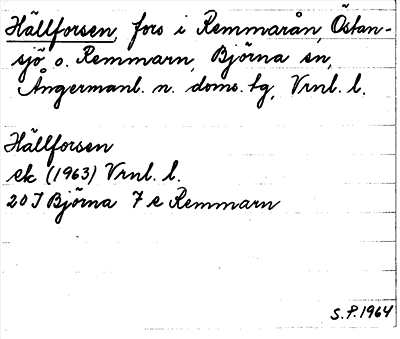 Hällforsen, fors i Remmarån, Östan-
sjö o. Remmarn, Björna sn,
Ångermanl. n. doms. tg, Vrnl. l.
Hällforsen
ek (1963) Vrnl. l.
20 I Björna 7 e Remmarn
S.P. 1964